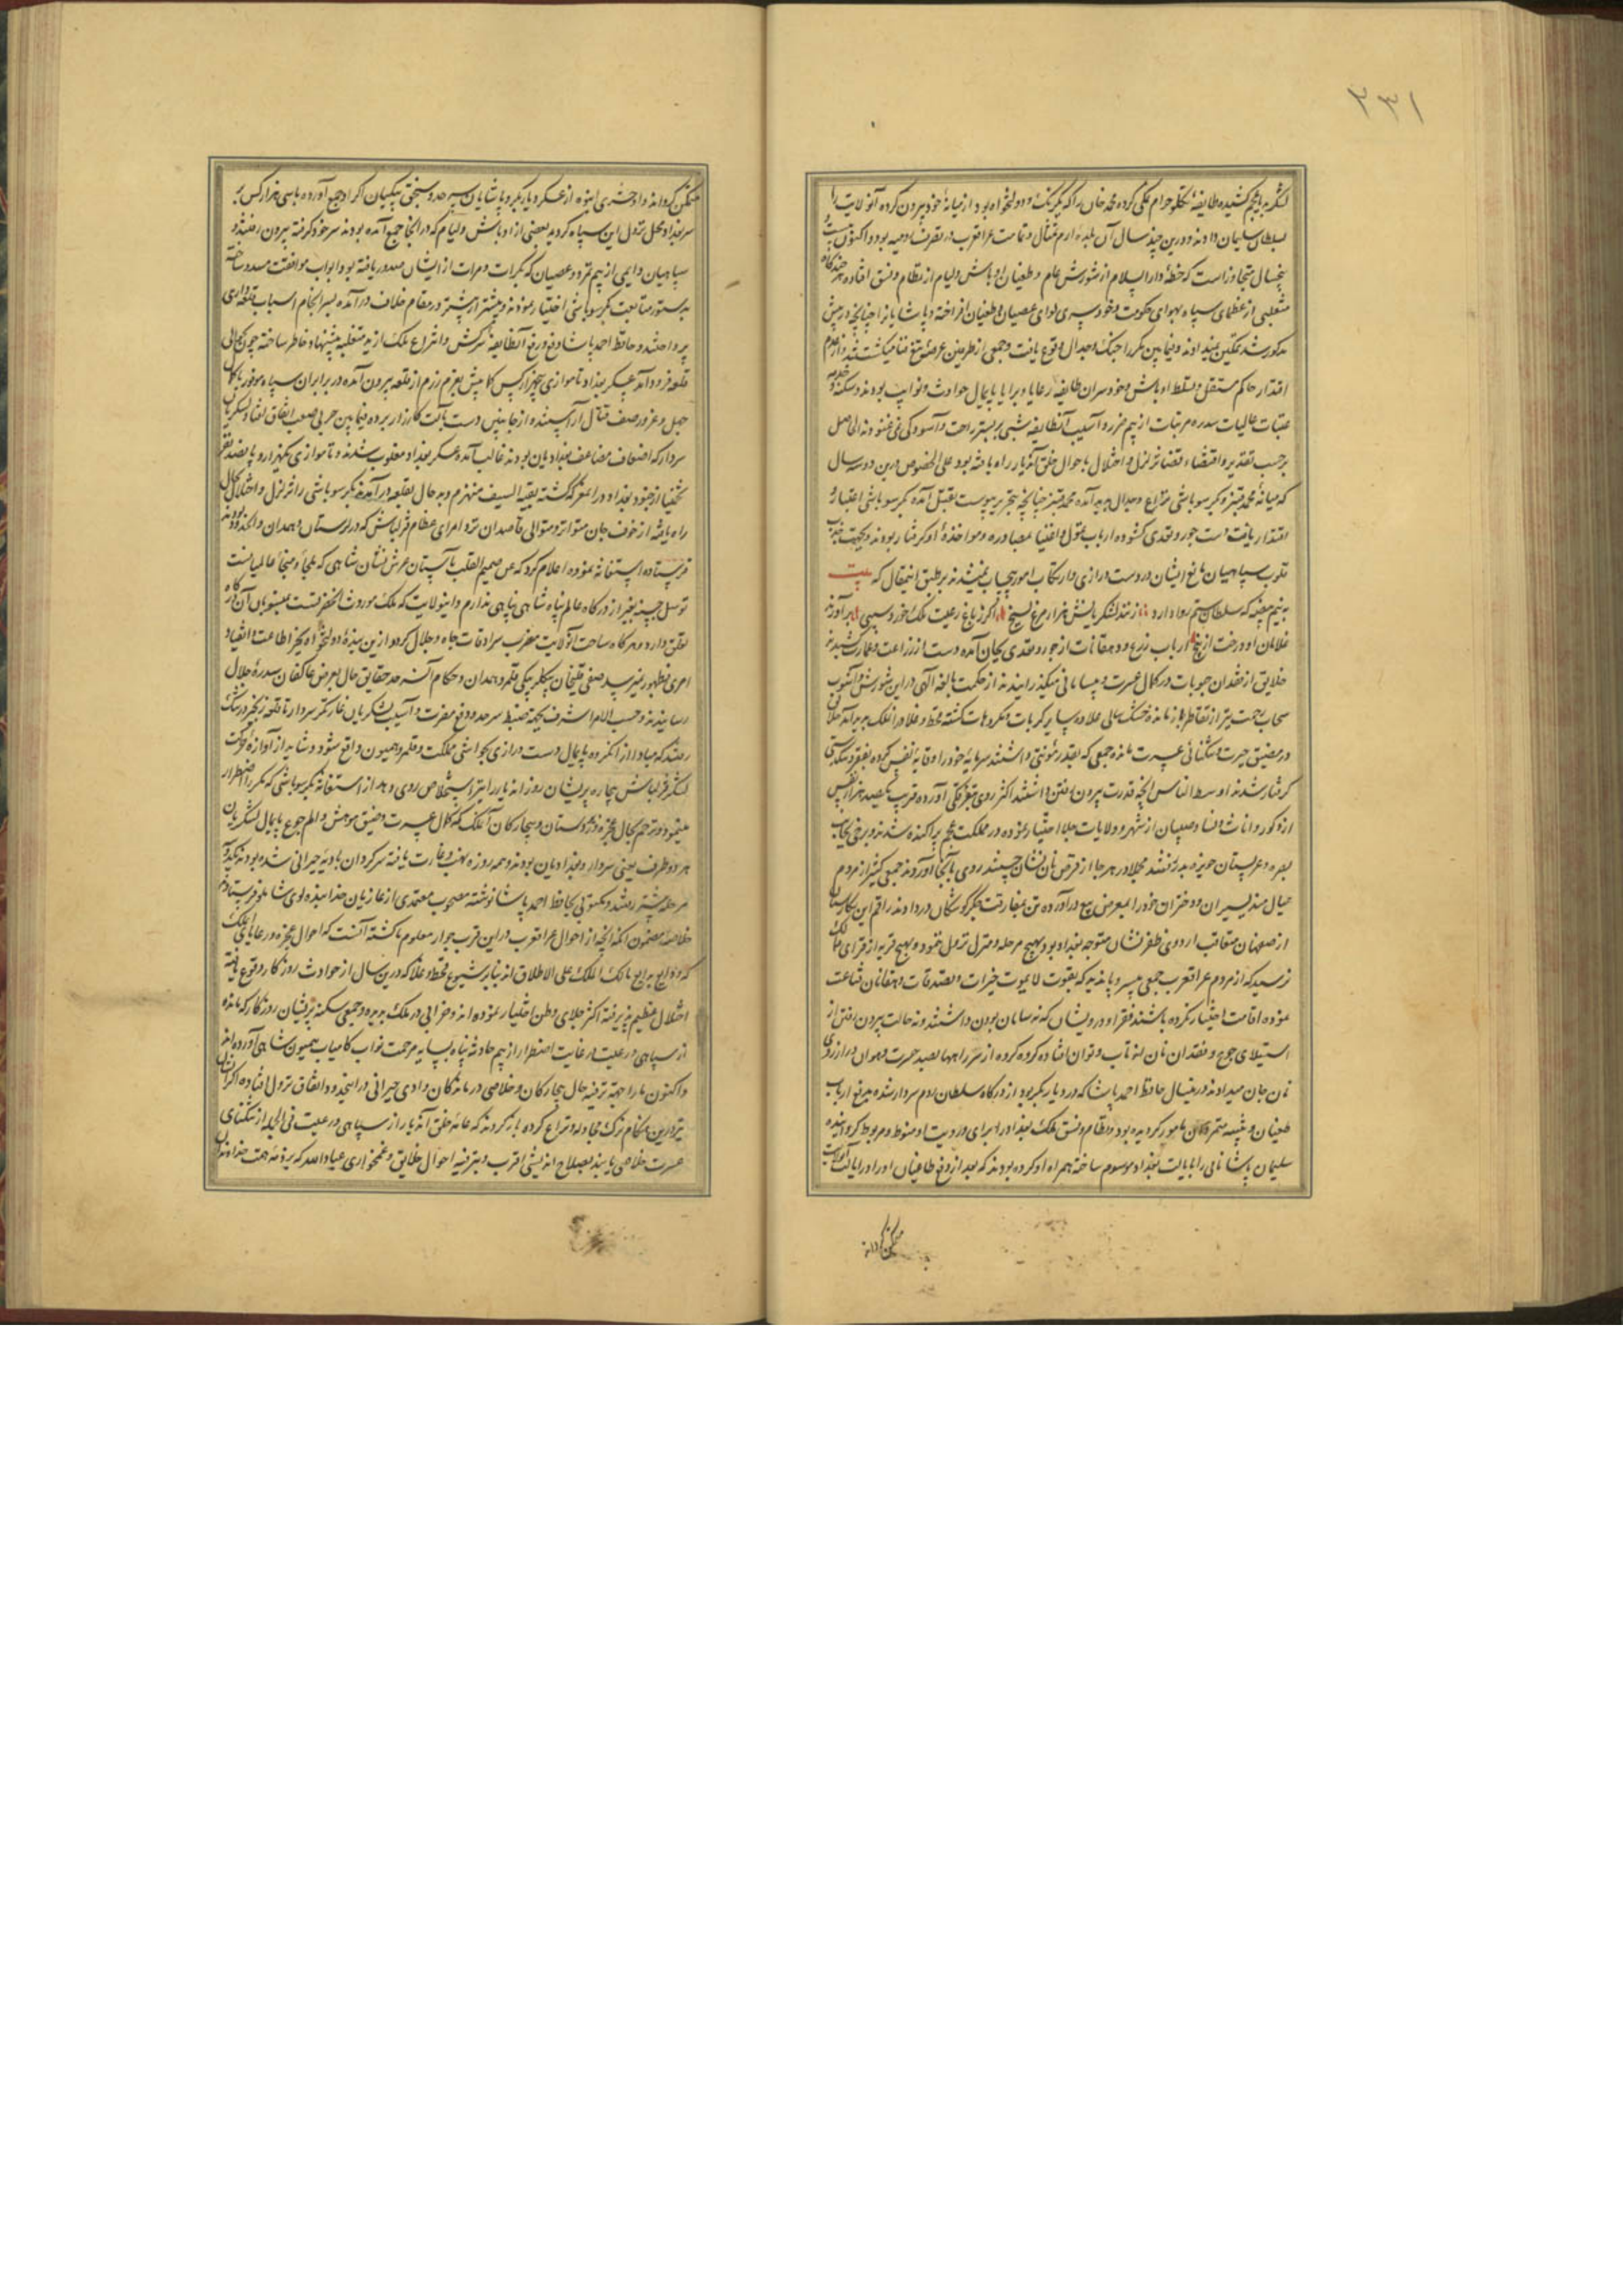 ۲۳۱
لشکر به عجم کشیده طایفهٔ تکلو حرام نمکی کرده محمد خان را که یکرنک و دولتخواه بود از میانهٔ خود بیرون کرده آنولایت را
بسلطان سلیمان دادند و درین چند سال آن بلده ارم مثال و تمامت عراقعرب در تصرف رومیه بود و اکنون بیست و
پنجسال متجاوز است که خطهٔ دار السلام از شورش عام و طغیان اوباش و لیام از نظام و نسق افتاده هر چندگاه
متغلبی از عظمای سپاه بهوای حکومت و خودسری لوای عصیان و طغیان افراخته و پاشایانرا چنانچه در پیش
مذکور شد تمکین نمیدادند و فیمابین مکرر جنک و جدال وقوع یافت و جمعی از طرفین عرضهٔ تیغ فنا میکشتند و از عدم
اقتدار حاکم مستقل و تسلط اوباش و خودسران طایفه رعایا و برایا پایمال حوادث و نوایب بودند و سکنه و خدمه
عتبات عالیات سدره مرتبات از بیم ضرر و آسیب آنطایفه شبی بر بستر راحت و آسودکی نمی غنودند الحاصل
برحسب تقدیر و اقتضاء قضا تزلزل و اختلال باحوال خلق آندیار راه یافته بود علی الخصوص درین دو سه سال
که میانهٔ محمد قنبر و بکر سوباشی نزاع و جدال پدید آمده محمد قنبر چنانچه بتحریر پیوست بقتل آمده بکر سوباشی اعتبار و
اقتدار یافت دست جور و تعدی کشوده ارباب تمول و اغنیا بمصادره و مواخذهٔ او کرفتار بودند و بجهت جذب
قلوب سپاهیان مانع ایشان در دست درازی و ارتکاب امور بیحساب نمیشدند بر طبق اینمقال که بیت
به نیم بیضه که سلطان ستم روا دارد زنند لشکریانش هزار مرغ بسیخ اکر ز باغ رعیت ملک خورد سیبی برآورند
غلامان او درخت از بیخ ارباب زرع و دهقانان از جور و تعدی بجان آمده دست از زراعت و عمارت کشیدند
خلایق از فقدان حبوبات در کمال عسرت و بیسامانی میکذرانیدند از حکمت بالغه آلهی در این شورش و آشوب
سحاب رحمت نیز از تقاطر باز مانده خشک سالی علاوه سایر کربات و مکروهات کشته قحط و غلا در آنملک پدید آمد خلایق
در مضیق حیرت و تنکنای عسرت مانده جمعی که بقدر مؤنتی داشتند سرمایهٔ خود را وقایهٔ نفس کرده بفقر و تنکدستی
کرفتار شدند اوسط الناس آنچه قدرت بیرون رفتن داشتند اکثر روی بتفرقکی آورده قریب بیکصد هزار نفس
از ذکور و اناث و نسا و صبیان از شهر و ولایات جلا اختیار نموده در مملکت عجم پراکنده شدند و برخی بجانب
بصره و عربستان حویزه بدر رفتند مجملا در هر جا از قرص نان نشان جستند روی بآنجا آوردند جمعی کثیر از مردم
عیالمند پسران و دختران خود را بمعرض بیع درآورده تن بمفارقت جکر کوشکان دردادند راقم این نکارستان
از صفهان متعاقب اردوی ظفرنشان متوجه بغداد بود بهیچ مرحله و منزل نزول ننمود و بهیچ قریه از قرای ممالک
نرسید که از مردم عراقعرب جمعی بیسر و پا ندید که بقوت لایموت خیرات و تصدقات دهقانان قناعت
نموده اقامت اختیار نکرده باشند فقرا و درویشان که نه سامان بودن داشتند و نه حالت بیرون رفتن از
استیلای جوع و فقدان نان بی تاب و توان افتاده کروه کروه از سر راهها بصد حسرت و هوان در آرزوی
نان جان میدادند درینسال حافظ احمد پاشا که در دیاربکر بود از درکاه سلطان روم سردار شده بدفع ارباب
طغیان و تنبیه متمردان مامور کردیده بود و نظام و نسق ملک بغداد را برای و رویت او منوط و مربوط کردانیده
سلیمان پاشا نامی را بایالت بغداد موسوم ساخته همراه او کرده بودند که بعد از دفع طاغیان او را در ایالت آنولایت
متمکن کرداند
متمکن کرداند او حشری انبوه از عسکر دیاربکر و پاشایان سرحد و سنجق بیکیان اکراد جمع آورده با سی هزار کس بر
سر بغداد محل نزول این سپاه کردید بعضی از اوباش و لیام که در آنجا جمع آمده بودند سر خود کرفته بیرون رفتند و
سپاهیان دایمی از بیم تمرد و عصیان که بکرات و مرات از ایشان صدور یافته بود ابواب موافقت مسدود ساخته
بدستور متابعت بکر سوباشی اختیار نمودند و بیشتر از پیشتر در مقام خلاف درآمده بسرانجام اسباب قلعه داری
پرداختند و حافظ احمد پاشا دفع و رفع آنطایفهٔ سرکش و انتزاع ملک از ید متغلبه پیشنهاد خاطر ساخته چون بحوالی
قلعه فرود آمد عسکر بغداد تا موازی پنجهزار کس کمابیش بعزم رزم از قلعه بیرون آمده در برابر آن سپاه موفور با کمال
جهل و غرور صفوف قتال آراستند از جانبین دست بآلت کارزار برده فیمابین حربی صعب اتفاق افتاد لشکریان
سردار که اضعاف مضاعف بغدادیان بودند غالب آمده عسکر بغداد مغلوب شدند و تا موازی یکهزار و پانصد نفر
تخمینا از جنود بغداد در آنمعرکه کشته بقیة السیف منهزم و بدحال بقلعه درآمدند بکر سوباشی را تزلزل و اختلال بحال
راه یافته از خوف جان متواتر و متوالی قاصدان نزد امرای عظام قزلباش که در لرستان و همدان و آنحدود بودند
فرستاده استغاثه نموده اعلام کرد که من صمیم القلب بآستان عرش نشان شاهی که ملجأ و منجأ عالمیانست
توسل جسته بغیر از درکاه عالم پناه شاهی پناهی ندارم و اینولایت که ملک موروث آنحضرتست بمنسوبان آن درکاه
تعلق دارد و هرکاه ساحت آنولایت مضرب سرادقات جاه و جلال کردد ازین بنده دولتخواه بغیر اطاعت و انقیاد
امری بظهور نمیرسد صفی قلیخان بیکلربیکی قلمرو همدان و حکام آن سرحد حقایق حال بعرض عاکفان سدرهٔ جلال
رسانیدند و حسب الامر الاشرف بجهة ضبط سرحد و دفع مضرت و آسیب لشکریان غارتکر سردار تا قلعه زنجیر و درتنک
رفتند که مبادا از آنکروه پایمال و دست درازی بحواشی مملکت و قلمرو همیون واقع شود و شاید از آوازهٔ حرکت
لشکر قزلباش بیچاره پریشان روزان آندیار را نیز استخلاص روی دهد از استغاثه بکر سوباشی که مکرر اضطرار
مینمود و ترحم بحال عجزه و زیردستان و بیچارکان آنملک که بکمال عسرت و ضیق معیشت و الم جوع پایمال لشکریان
هر دو طرف یعنی سردار و بغدادیان بودند و همه روزه نهب و غارت یافته سرکردان بادیهٔ حیرانی شده بودند یکدو
مرحله پیشتر رفتند و مکتوبی بحافظ احمد پاشا نوشته مصحوب معتمدی از غازیان خدابنده لوی شاملو فرستادند
خلاصهٔ مضمون آنکه آنچه از احوال عراقعرب در این قرب جوار معلوم ما کشته آنست که احوال عجزه و رعایای آنملک
که ودایع بدایع مالک الملک علی الاطلاق اند بنابر شیوع قحط و غلا که درین سال از حوادث روزکار وقوع یافته
اختلال عظیم پذیرفته اکثر جلای وطن اختیار نموده اند و خرابی در ملک پدید و جمعی سکنه پریشان روزکار که مانده
از سپاهی و رعیت از غایت اضطرار از بیم حادثه پناه بسایه مرحمت نواب کامیاب همیون شاهی آورده اند
و اکنون ما را بجهة ترفیه حال بیچارکان و خلاصی درماندکان وادی حیرانی در اینحدود اتفاق نزول افتاده اکر ایشان
نیز درین هنکام ترک مجادله و نزاع کرده باز کردند که عامهٔ خلق آندیار از سپاهی و رعیت فی الجمله از تنکنای
عسرت خلاصی یابند بصلاح اندیشی اقرب و بترفیه احوال خلایق و غمخواری عباد الله که بر ذمه همت خداوندان